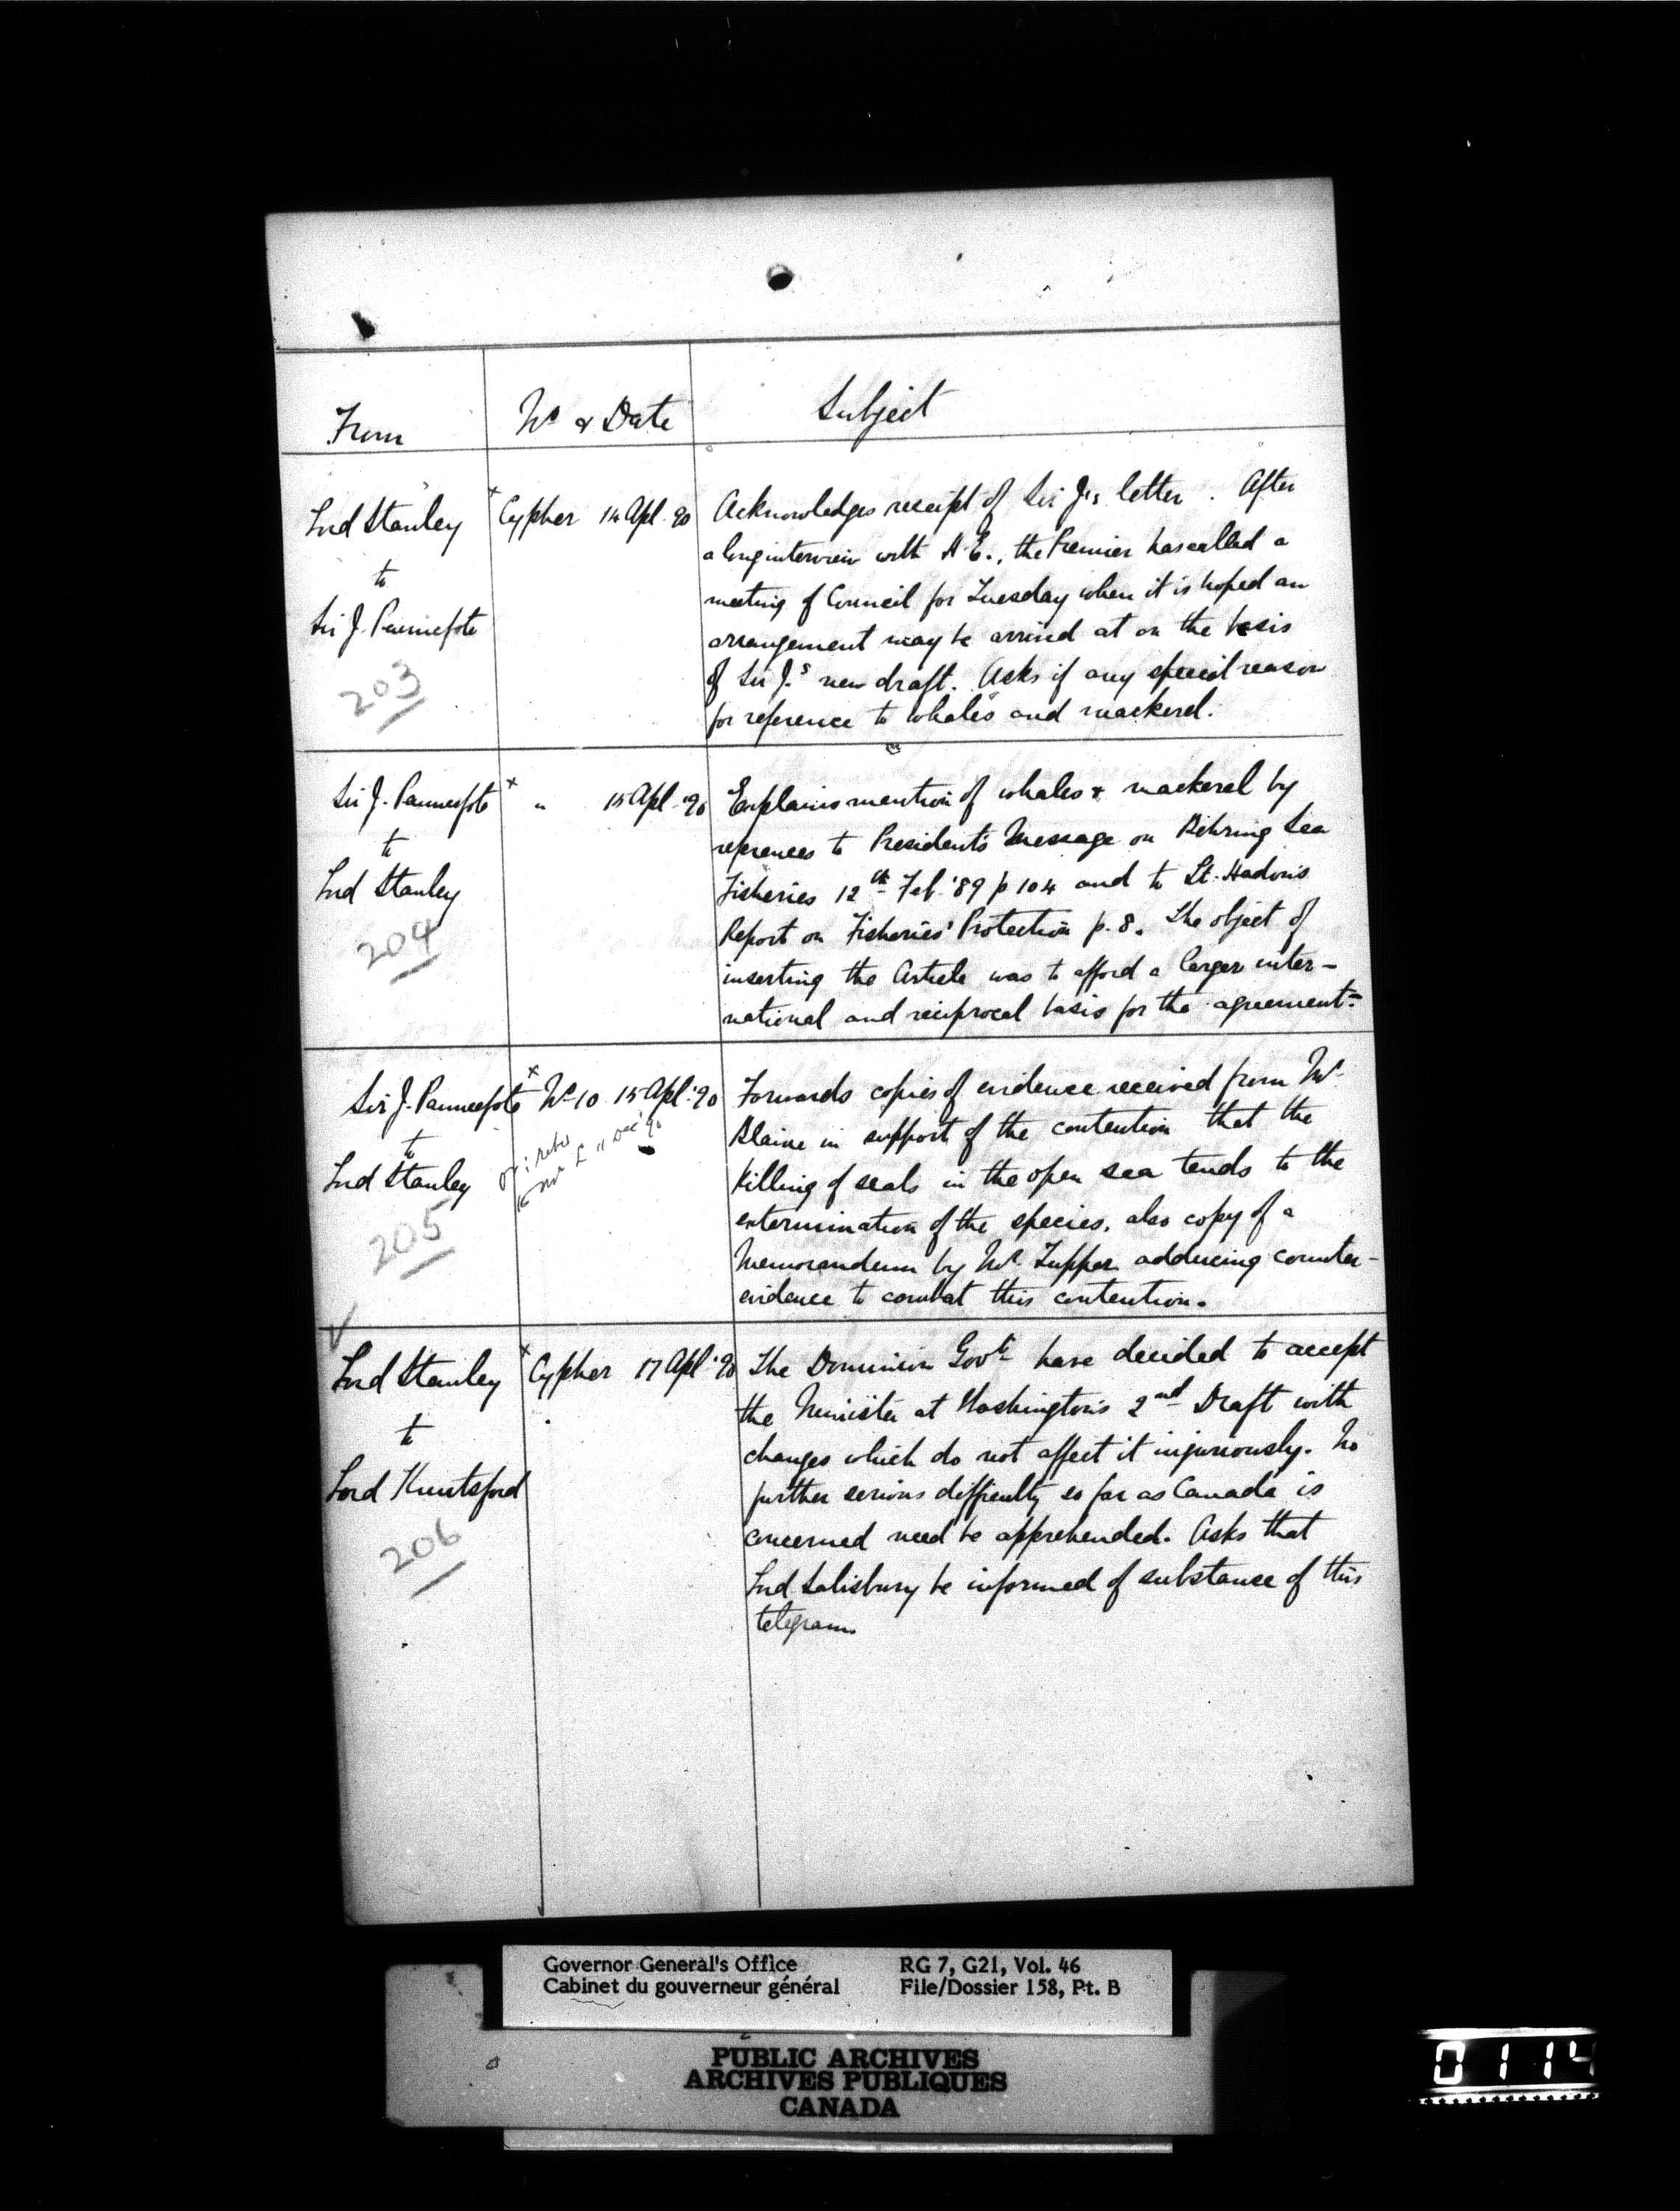 From
No & Date
Subject
Lord Stanley
to
Sir J. Pauncefote
203
x Cypher 14 Apl. 90
Acknowledges receipt of Sir J's letter. After
a long interview with H.E., the Premier has called a
meeting of Council for Tuesday when it is hoped an
arrangement may be arrived at on the basis
of Sir J.'s new draft. Asks if any special reason
for reference to whales and mackerel.
Sir J. Pauncefote
to
Lord Stanley
204
x " 15 Apl. '90
Explains mention of whales & mackerel by
references to President's Message on Behring Sea
Fisheries 12th Feb. '89 p 104 and to Lt. Hadon's
Report on Fisheries' Protection p. 8. The object of
inserting the Article was to afford a larger inter-
national and reciprocal basis for the agreement.
Sir J. Pauncefote
to
Lord Stanley
205
x No 10 15 Apl. '90
Dec 90
Forwards copies of evidence received from Mr
Blaine in support of the contention that the
killing of seals in the open sea tends to the
extermination of the species, also copy of a
Memorandum by Mr. Tupper adducing counter-
evidence to combat this contention.
Lord Stanley
to
Lord Knutsford
206
x Cypher 17 Apl. '90
The Dominion Govt have decided to accept
the Minister at Washington's 2nd Draft with
changes which do not affect it injuriously. No
further serious difficulty so far as Canada is
concerned need be apprehended. Asks that
Lord Salisbury be informed of substance of this
telegram
Governor General's Office
Cabinet du gouverneur général
RG 7, G21, Vol. 46
File/Dossier 158, Pt. B
PUBLIC ARCHIVES
ARCHIVES PUBLIQUES
CANADA
0114